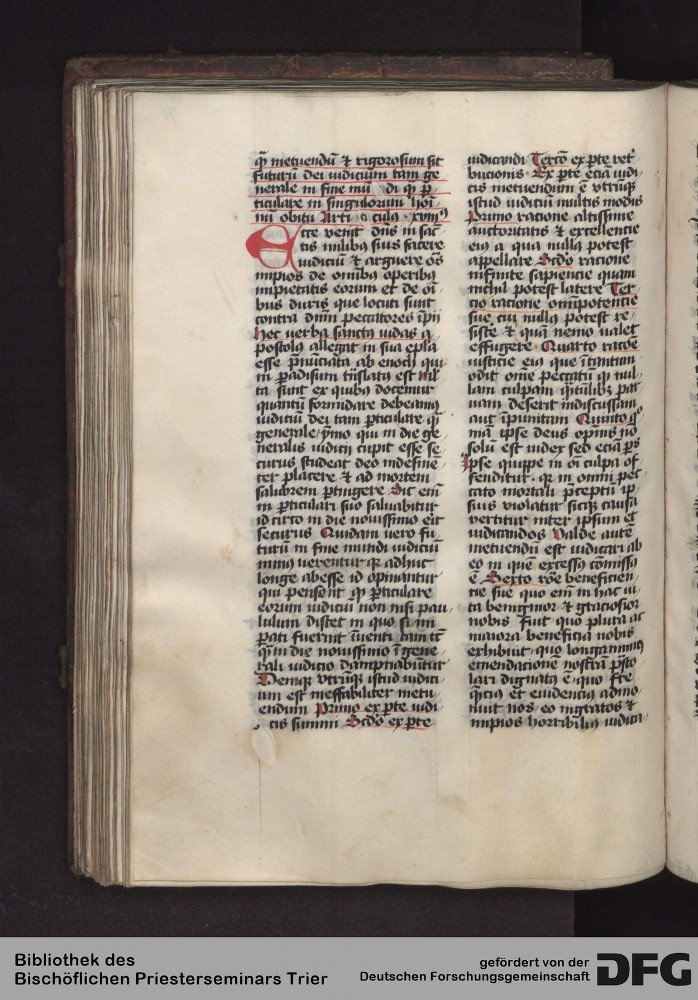 q̄ metuendū & rigorosum sit
futurū dei iudicium tam ge
nerale in fine mūdi q̄ p̄
ticulare in singulorum hoī
nū obitu Arti culꝰ xviijꝰ
Ecce venit dn̄s in sāc
tis milibꝰ suis facere
iudiciū & arguere oēs
impios de omībꝰ operibꝰ
impietatis eorum et de oī
bus duris que locuti sunt
contra dn̄m peccatores īpij
hec verba sanctꝰ iudas a
postolꝰ allegat in sua epl̄a
esse p̄nūciata ab enoch qui
in p̄adisum trāslatꝰ est
ta sunt ex quibꝰ docemur
quantū formidare debeamꝰ
iudiciū dei tam p̄ticulare q̄
generale ymo qui in die ge
neralis iudicij cupit esse se
curus studeat deo indefine
ter placere & ad mortem
salubrem p̄tingere Sic eīm
in p̄ticulari suo saluabitur
idcirco in die nouissimo erit
securus Quidam vero fu
turū in fine mundi iudiciū
minus verentur q̄ adhuc
longe abesse id opinantur
qui pensent q̄ p̄ticulare
eorum iudiciū non nisi pau
lulum distet in quo si im
p̄ati fuerint īuenti tam
q̄ in die nouissimo ī gene
rali iudicio dampnabūtur
Deniqꝫ vtrūqꝫ istud iudici
um est ineffabiliter metu
endum Primo ex p̄te iudi
cis summi Scdō ex p̄te
iudicandi Tercō ex p̄te ret
bucionis Ex p̄te eciā iudi
cis metuendum ē vtrūqꝫ
istud iudiciū multis modis
Primo racione altissime
auctoritatis & excellencie
eiꝰ a qua nullꝰ potest
appellare Scdō racione
infinite sapiencie quam
nichil potest latere Ter
cio racione omīpotencie
sue cui nullꝰ potest re
sistē & quā nemo valet
effugere Quarto racōe
iusticie eiꝰ que ītantum
odit om̄e peccatū q̄ nul
lam culpam q̄tūlibꝫ par
uam deserit indiscussam
aut īpunitam Quinto
ipse deus no
solū est iudex sed eciā p̄s
Ipse quippe in oī culpa of
fenditur qꝫ in omni pec
cato mortali p̄ceptū ip
sius violatur sicqꝫ causa
vertitur inter ipsum et
iudicandos Valde autē
metuendū est iudicari ab
eo in quē excessꝰ cōmissꝰ
ē Sexto rōe beneficien
cie sue quo eīm in hac ui
ta benignior & graciosior
nobis fuit quo plura ac
maiora beneficia nobis
exhibuit quo longanimiꝰ
emendacionē nostrā p̄sto
lari dignatꝰ ē quo fre
q̄cius et euidencius admo
nuit nos eo ingratos &
impios horribiliꝰ iudica
Bibliothek des
Bischöflichen Priesterseminars Trier
gefördert von der
Deutschen Forschungsgemeinschaft
DFG